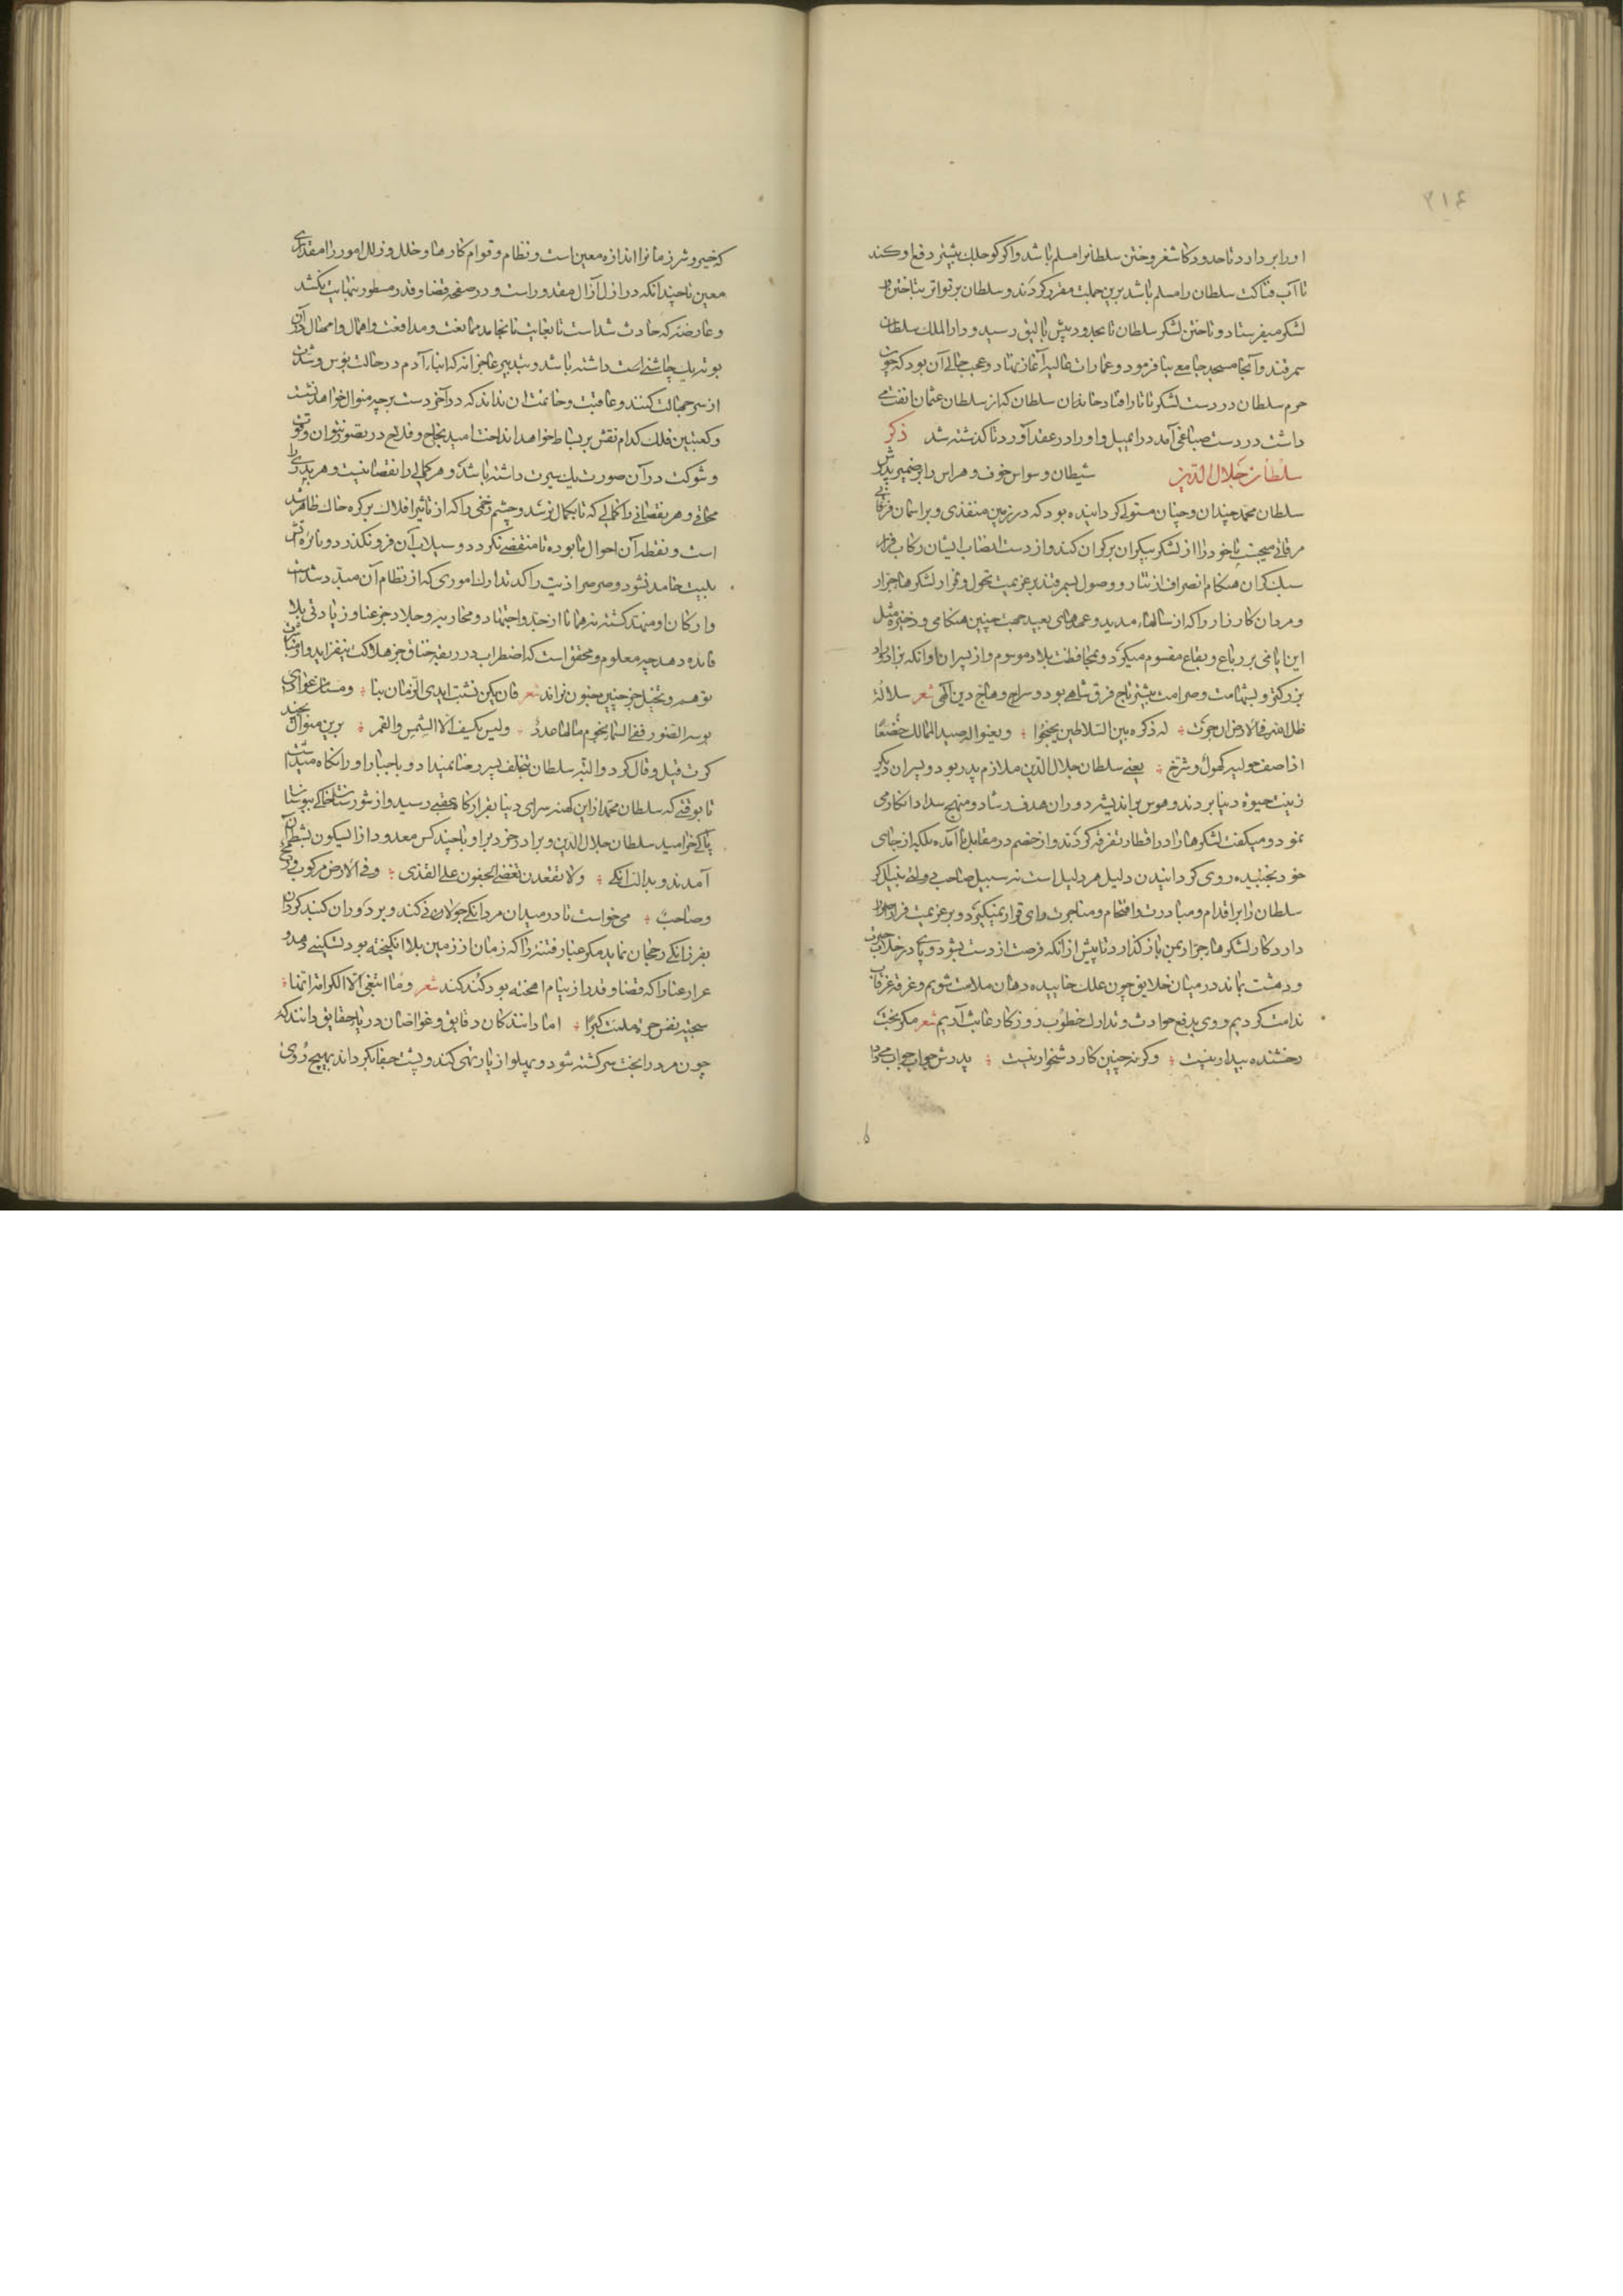 ۲۱۴
او را بردارد تا حدود کاشغر و ختن سلطانرا مسلم باشد و اگر کوجلک بیشتر دفع او کند
تا آب فناکت سلطان را مسلم باشد برین جملت مقرر کردند و سلطان بر تواتر بتاختن
لشکر میفرستاد و تاختن لشکر سلطان تا بحدود بیش بالیق رسید و دار الملک سلطان
سمرقند و آنجا مسجد جامع بنا فرمود و عمارات عالیه آغاز نهاد و عجب حالی آن بود که چون
حرم سلطان در دست لشکر تاتار افتاد خاندان سلطان که از سلطان عثمان انفت می
داشت در دست صباغی آمد در ایمیل و او را در عقد آورد تا گذشته شد ذکر
سلطان جلال الدین شیطان وسواس خوف و هراس را بر ضمیر پدرش
سلطان محمد چندان و چنان مستولی گردانیده بود که در زمین منفذی و بر آسمان
مرقاتی میجست تا خود را از لشکر بیکران بر کران کند و از دست انصاب ایشان رکاب فرار
سبک گران هنگام انصراف از تتار و وصول بسمرقند بر عزیمت تحول و فرار لشکرهاء جرار
و مردان کارزار را که از سالهاء مدید و عهدهای بعید جهت چنین هنگامی و ذخیره مثل
این ایامی بر رباع و بقاع مقسوم میکرد و بمحافظت بلاد موسوم و از پسران او آنکه بزاد و بود
بزرگتر و بشهامت و صرامت بیشتر تاج فرق شاهی بود و سراج وهاج دین الهی شعر سلالة
ظل الله فی الارض ان جرت لدی ذکره بین السلاطین یبخبخوا و یعنو اله صید الممالک خضعا
اذا صف حولیه کهول و شرخ یعنی سلطان جلال الدین ملازم پدر بود و پسران دیگر
زینت حیوة دنیا بردند و هوس بر اندیشه دوران هدف رشاد و منهج سداد انکار می
نمود و میگفت لشکرها را در اقطار تفرقه کردن و از خصم در مقابل نا آمده بلکه از جای
خود نجنبیده روی گردانیدن دلیل هر دلیل است نه سبیل صاحب دولتی نبیل اگر
سلطان را بر اقدام و مبادرت و اقتحام و مناجزت رای قرار نمیگیرد و بر عزیمت فرار اصرار
دارد کار لشکرهاء جرار بمن باز گذارد تا پیش از آنکه فرصت از دست بشود و پای در خلاب حیرت
و دهشت بماند در میان خلایق چون علک خاییده دهان ملامت شویم و غرقه غرقاب
ندامت گردیم و روی بدفع حوادث و تدارک خطوب روزگار عابث آریم شعر مگر بخت
رخشنده بیدار نیست وگرنه چنین کار دشخوار نیست پدرش جواب
که خیر و شر زمانرا اندازه معین است و نظام و قوام کارها و خلل و زلل امور را مقداری
معین تا چندانکه در ازل آزال مقدور است و در صفحه قضا و قدر مسطور بنهایت نکشد
و عارضه که حادث شده است تا بغایت نانجامد ممانعت و مدافعت و اهمال و امهال در آن
بوته یک چاشنی است داشته باشد و بتدبیر عاجزانه که ابناء آدم در حالت بؤس و شدت
از سر جهالت کنند و عاقبت و خاتمت آن ندانند که در آخر دست بر چه منوال خواهد نشست
و کعبتین فلک کدام نقش بر بساط خواهد انداخت امید نجاح و فلاح در تصور نتوان و قوت
و شوکت در آن صورت یک سیرت داشته باشد و هر کمالی را نقصانیست و هر بدری را
محاقی و هر نقصانی را کمالی که تا بکمال نرسد و چشم زخمی را که از تاثیر افلاک بر کره خاک ظاهر شد
است و نقطه آن احوال نابوده تا منقضی نگردد و سیلاب آن فرو نگذرد و نائره آتش
بلیت خامد نشود و صرصر اذیت راکد تدارک اموری که از نظام آن مبدد شدست
و ارکان او منهد گشته نه همانا از جد و اجتهاد و محاربه و جلاد جز عنا و زیادتی بلا
فایده دهد چه معلوم و محقق است که اضطراب در ربقه خناق جز هلاکت نیفزاید و از
توهم و تخیل جز چنین جنون نزاید شعر فان یکن نشبت ایدی الزمان بنا و مسنا من عوادی
بوسه الضرر ففی السماء نجوم ما لها عدد ولیس یکسف الا الشمس والقمر برین منوال بچند
کرت قیل و قال کرد و البته سلطان بتخلف پسر رضا نمیداد و باجبار او را نگاه میداشت
تا بوقتی که سلطان محمد از این کهنه سرای دنیا بقرارگاه عقبی رسید و از شورستان خاکی ببوستان
پاکی خرامید سلطان جلال الدین و برادر خردتر او با چند کس معدود از آبسکون بشط
آمدند و بدانک ولا تقعدن تغضی الجفون علی القذی وفی الارض مرکوب و رمح
وصاحب می خواست تا در میدان مردانگی جولان کند و بر دوران گنبد گردان
بفرزانگی رجحان نماید مگر غبار فتنه را که زمان از زمین بلا انگیخته بود تسکینی دهد و
غرار عنا را که قضا و قدر از نیام آهخته بود کند کند شعر و ما ابتغی الا الکرامة انما
سجیة نفس حرة ملئت کبرا اما دانندگان دقایق و غواصان دریاء حقایق دانند که
چون مرد را بخت سرگشته شود و پهلو از یار تهی کند و پشت جفا بگرداند بهیچ روی